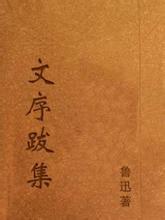 文序跋集
鲁迅著